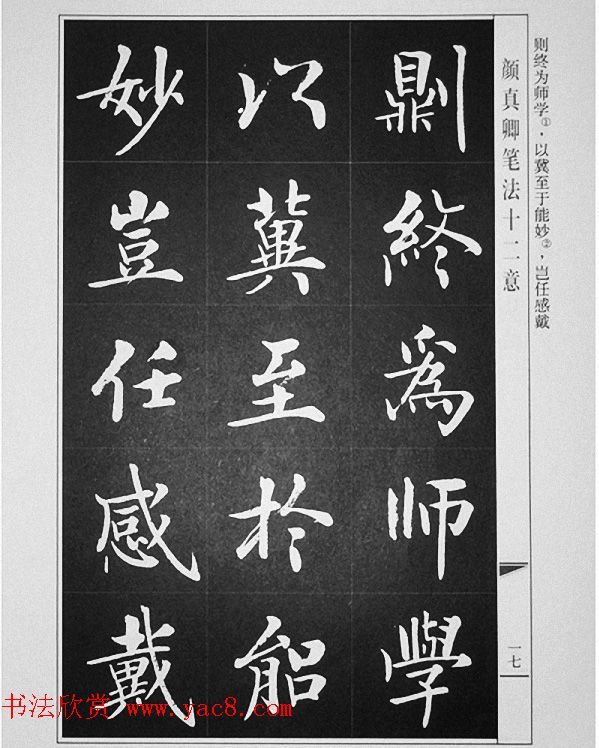 则终为师学①，以冀至于能妙②，岂任感戴
颜真卿笔法十二意
一七
鼎終為师學
以冀至於能
妙豈任感戴
书法欣赏 www.yac8.com